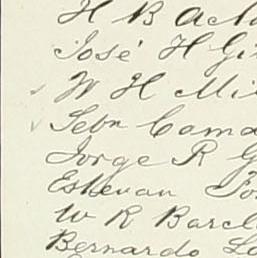 H B Ac
José H Gi
W H Mil
Sebn Coma
Jorge R G
Estevan Fo
W R Barcl
Bernardo Lo